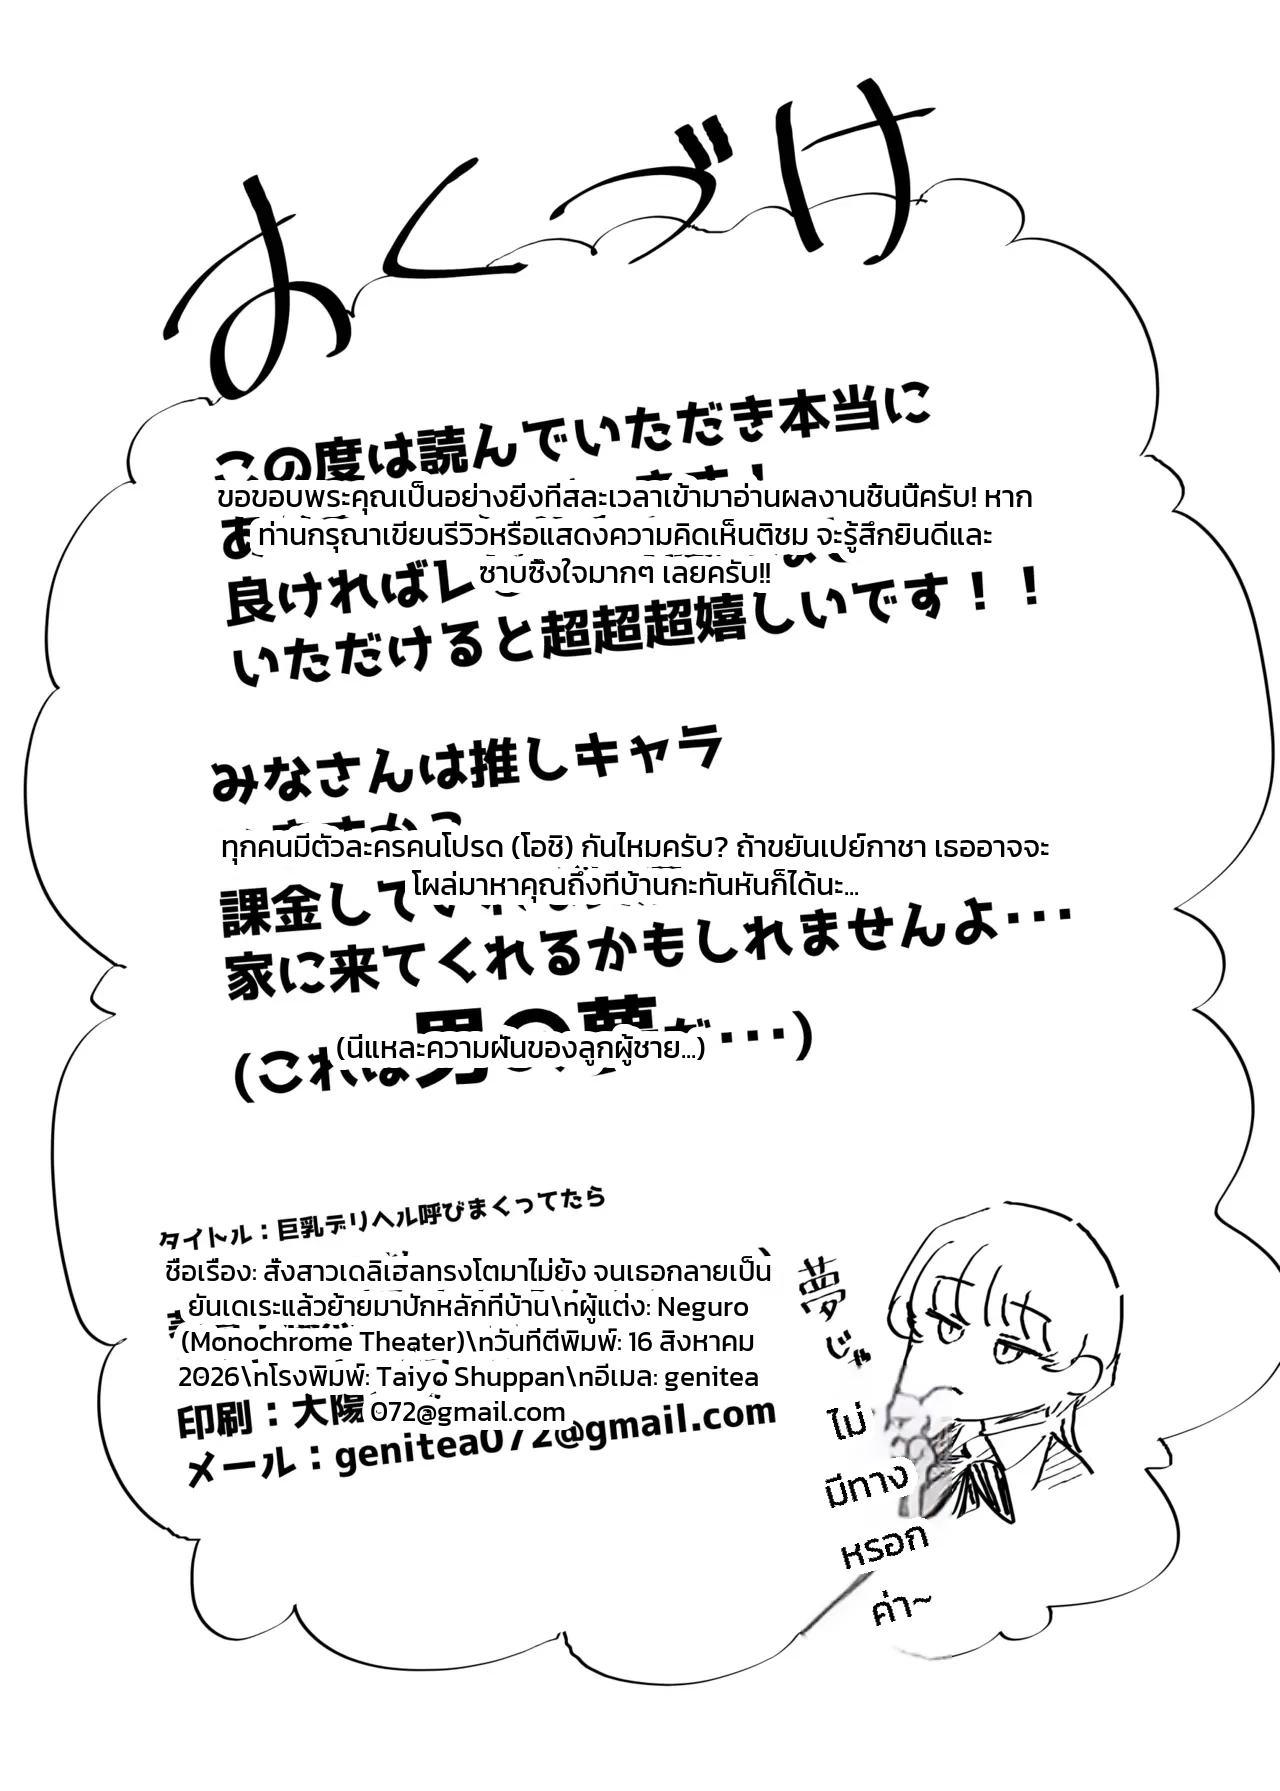 おくづけ
この度は読んでいただき本当に
ขอขอบพระคุณเป็นอย่างยิ่งที่สละเวลาเข้ามาอ่านผลงานชิ้นนี้ครับ! หาก
ท่านกรุณาเขียนรีวิวหรือแสดงความคิดเห็นติชม จะรู้สึกยินดีและ
ซาบซึ้งใจมากๆ เลยครับ!!
良ければ
いただけると超超超嬉しいです！！
みなさんは推しキャラ
ทุกคนมีตัวละครคนโปรด (โอชิ) กันไหมครับ? ถ้าขยันเปย์กาชา เธออาจจะ
โผล่มาหาคุณถึงที่บ้านกะทันหันก็ได้นะ...
課金して
家に来てくれるかもしれませんよ･･･
(นี่แหละความฝันของลูกผู้ชาย...)
(これは男の夢だ･･･)
タイトル：巨乳デリヘル呼びまくってたら
ชื่อเรื่อง: สั่งสาวเดลิเฮลทรงโตมาไม่ยั้ง จนเธอกลายเป็น
ยันเดเระแล้วย้ายมาปักหลักที่บ้าน\nผู้แต่ง: Neguro
(Monochrome Theater)\nวันที่ตีพิมพ์: 16 สิงหาคม
2026\nโรงพิมพ์: Taiyo Shuppan\nอีเมล: genitea
072@gmail.com
印刷：大陽
メール：genitea072@gmail.com
夢じゃ
ไม่
มีทาง
หรอก
ค่า~